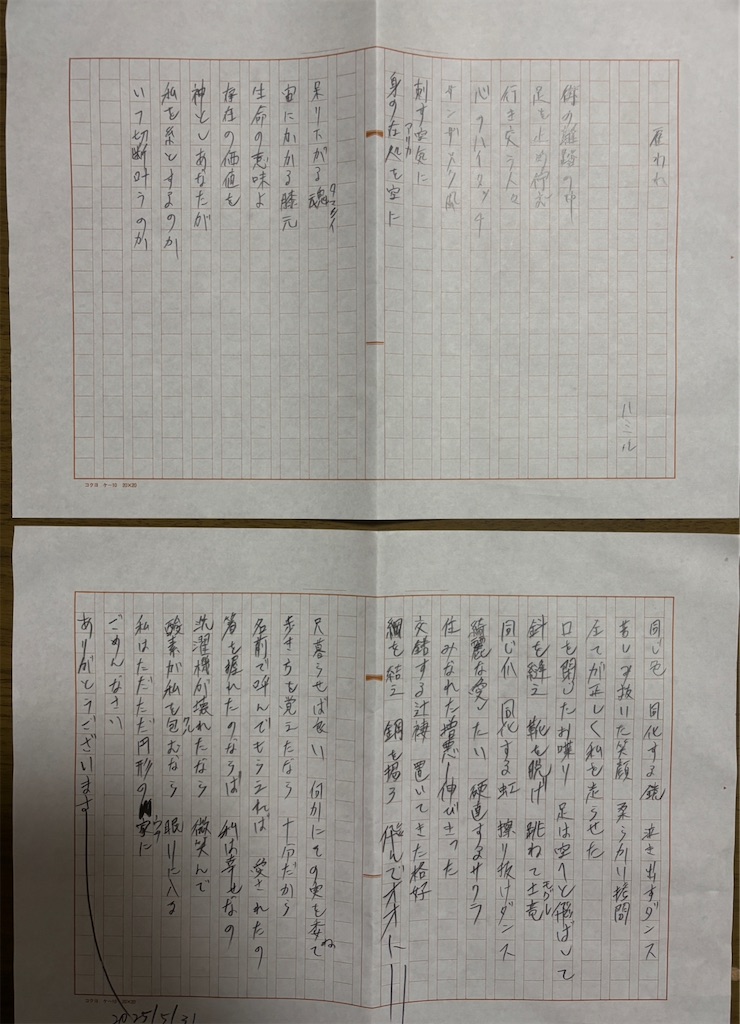 雇われ
ハミル
街の雑踏の中
足を止め佇む
行き交う人々
心のハイタッチ
サンザメク風
刺す空気に
身の在処を空に
アリカ
ぶり下がる魂
タマシイ
宙にかかる膝元
生命の意味よ
存在の価値を
神としあなたが
私を糸とするのか
いつ切断叶うのか
コクヨ ケ-10 20×20
同じ色 同化する鏡 泣き出すダンス
苦しみ抜いた笑顔 柔らかい拷問
全てが正しく私を走らせた
口を開いたお喋り 足は空へと飛ばして
斜を縫え 靴を脱げ 跳ねて土竜
モグル
同じ爪 同化する虹 擦り抜けダンス
綺麗な愛したい 硬直するサクラ
住みなれた憎悪 伸びきった
交錯する辻褄 置いてきた格好
綱を結え 鋼を揚ろ 飛んでオオに
只暮らせば良い 何かにその実を委ね
歩き方を覚えたなら 十分だから
名前で呼んでもらえれば 愛されたの
箸を握れたのならば 私は幸せなの
洗濯機が壊れたなら 微笑んで
酸素が私を包むなら 眠りに入る
私はただただ円形の 宙に
ごめんなさい
ありがとうございます
コクヨ ケ-10 20×20
2025/5/31